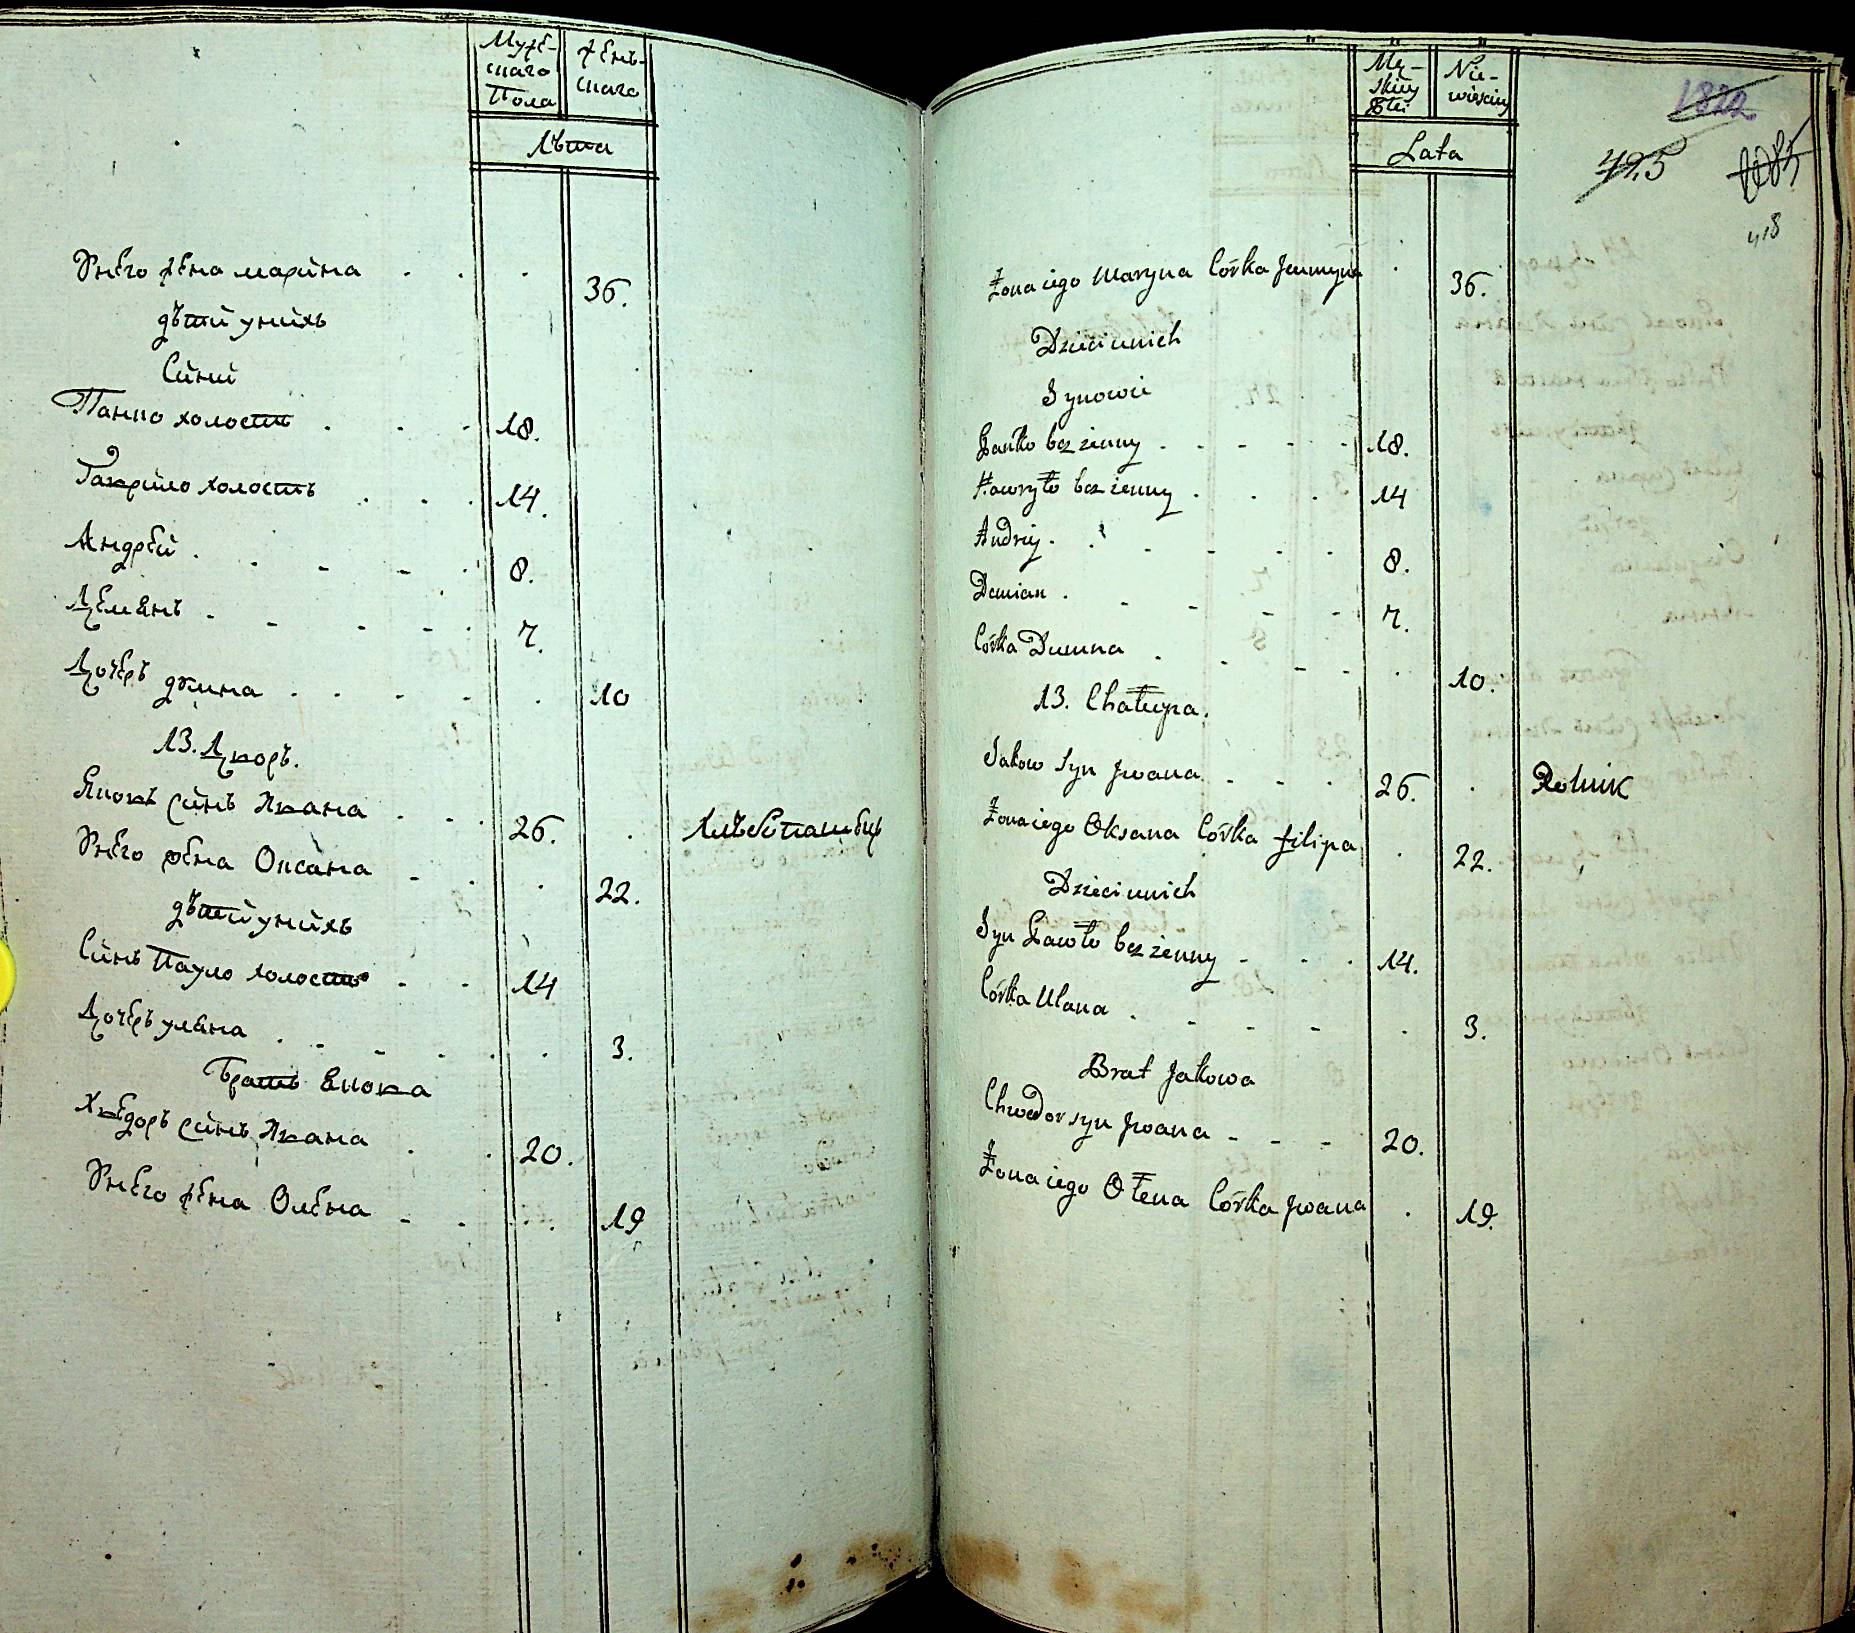 Муже-
скаго
Пола
жень-
скаго
Лѣта
Унего жена марина 36.
дѣтй унйхъ
Сйнй
Панко холостъ 18.
Гаврйло холостъ 14.
Андрей 8.
Демянъ 7.
Дочеръ дмина 10
13. Дворъ.
Яковъ сйнъ Ивана 26. Хлѣбопашецъ
Унего жена Оксана 22.
дѣтйунйхъ
Сйнъ Пауло холостъ 14
Дочеръ уляна 3.
Братъ Якова
Хведоръ сйнъ Ивана 20.
Унего жена Олена 19
Mę-
skiey
Płci
Nie-
wieściey
Lata
1822
425
1085
418
Żona iego Maryna Córka 36.
Dzieci unich
Synowie
Pańko bezżenny 18.
Hawryło bezżenny 14
Andriy 8.
Demian 7.
Córka Dumna 10.
13. Chałupa.
Jakow Syn Jwana 26. Rolnik
Żona iego Oksana Córka filipa 22.
Dzieci unich
Syn Pawło bezżenny 14.
Córka Ulana 3.
Brat Jakowa
Chwedor syn Jwana 20.
Żona iego Ołena Córka Jwana 19.